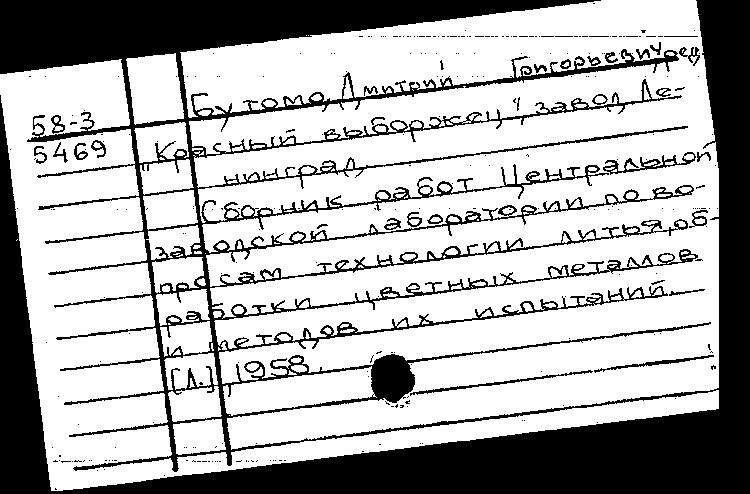 Бутомо, Дмитрий Григорьевич, ред.
58-3
5469
„Красный выборжец", завод, Ле-
нинград.
Сборник работ Центральной
заводской лаборатории по во-
просам технологии литья, об-
работки цветных металлов
и методов их испытаний.
[Л.], 1958.